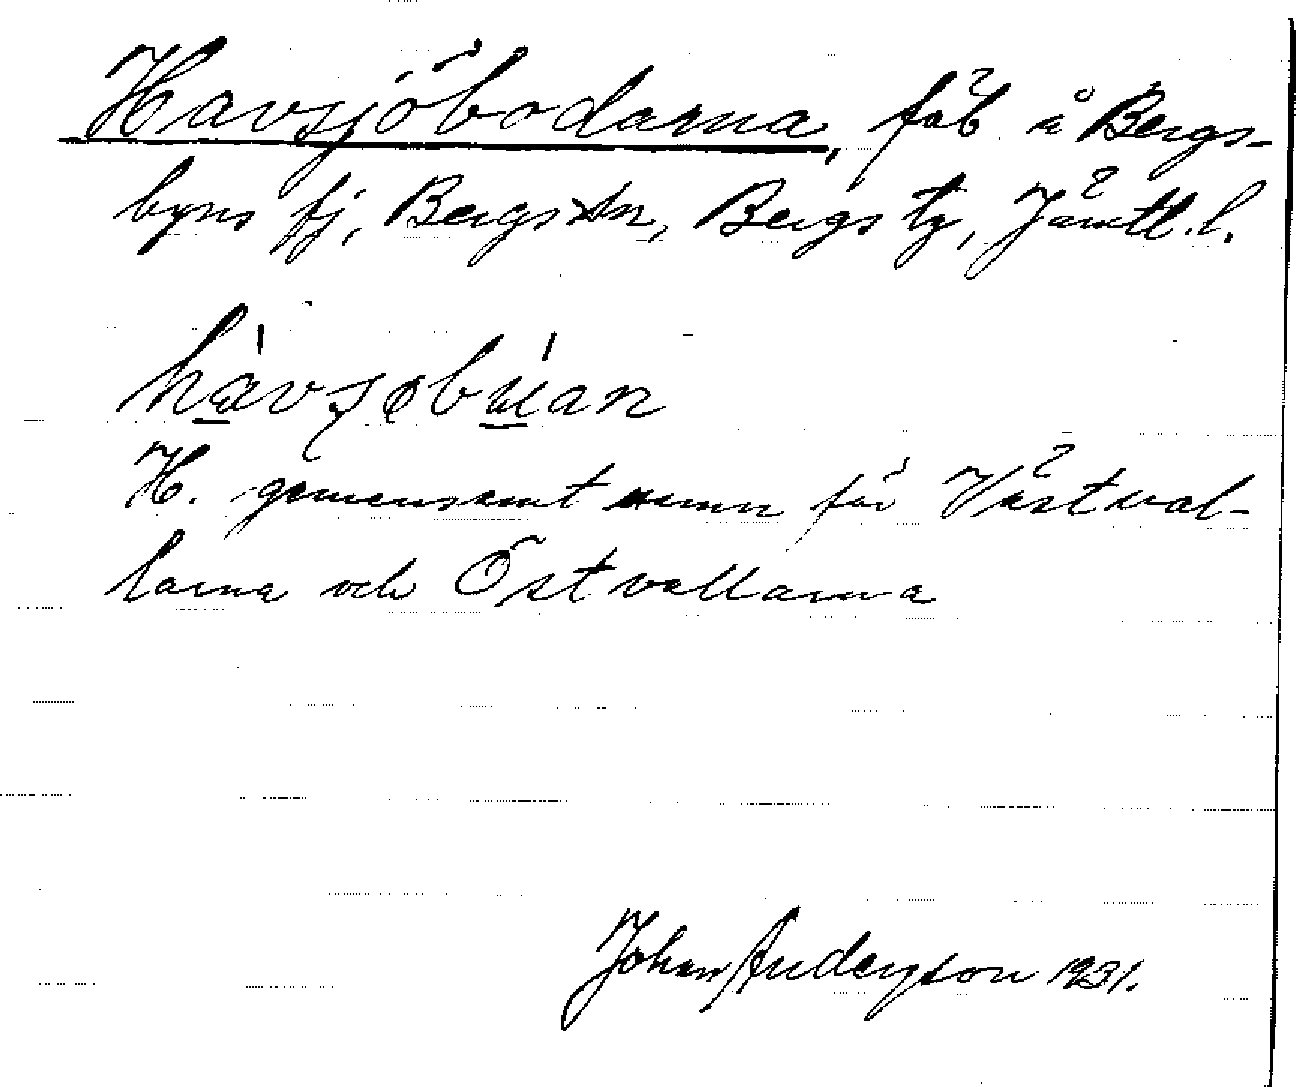 Havsjöbodarna, fäb å Bergs-
byns fj, Bergs sn, Bergs tg, Jämtl. l.
hàvsjøbúan
H. gemensamt namn för Västval-
larna och Östvallarna
Johan Anderzson 1931.